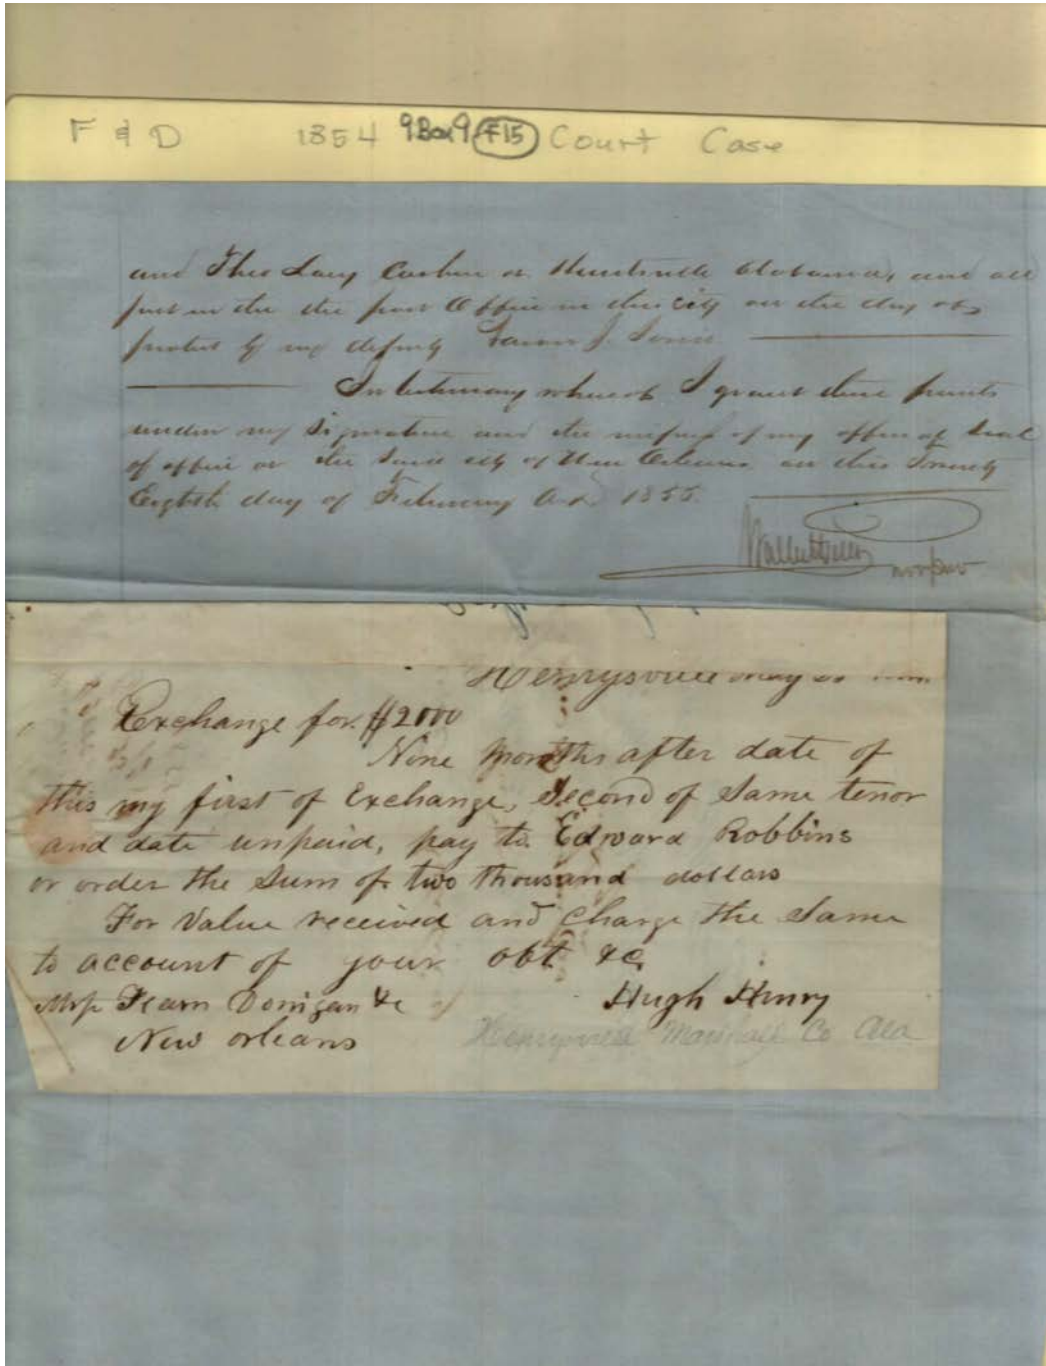 F & D 1854 9Box9 F15 Court Case
and Theo Lacy Cashier at Huntsville Alabama, and all
put in the the post Office in this city on the day of
protest by my deputy
In testimony whereof I grant these presents
under my signature and the impress of my office of Seal
of office at the said city of New Orleans on this Twenty
Eighth day of February A.D. 1855.
Not Pub
Henrysville may
Exchange for $2000
Nine Months after date of
this my first of Exchange, Second of Same tenor
and date unpaid, pay to Edward Robbins
or order the Sum of two thousand dollars
For Value received and Charge the Same
to account of your obt &c
Mssrs Fearn Donigan &c Hugh Henry
New orleans Henryville Marshall Co Ala